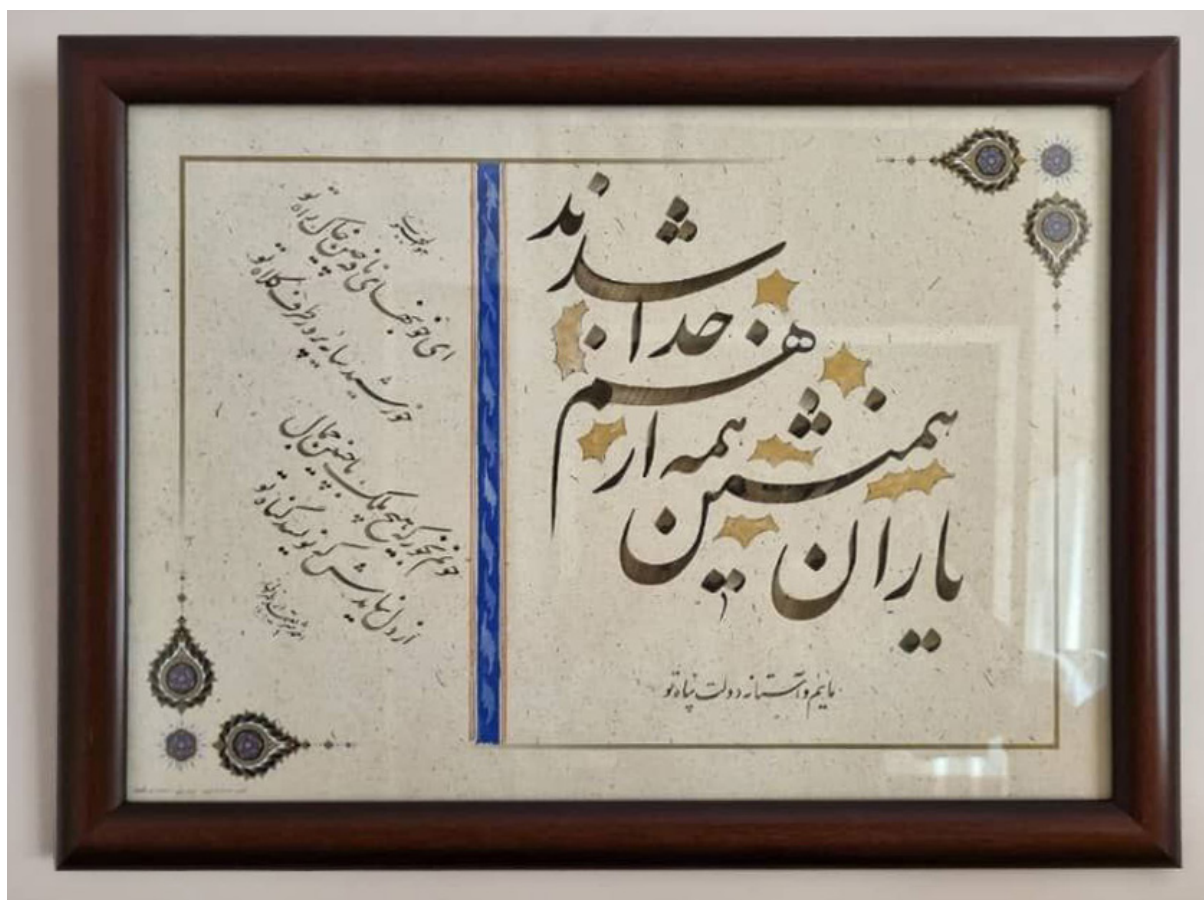 یاران همنشین همه از هم جدا شدند
ماییم و آستانه دولت پناه تو
ای خونبهای نافه چین خاک راه تو
خورشید سایه پرور طرف کلاه تو
خونم بخور که هیچ ملک با چنین جمال
از دل نیایدش که نویسد گناه تو